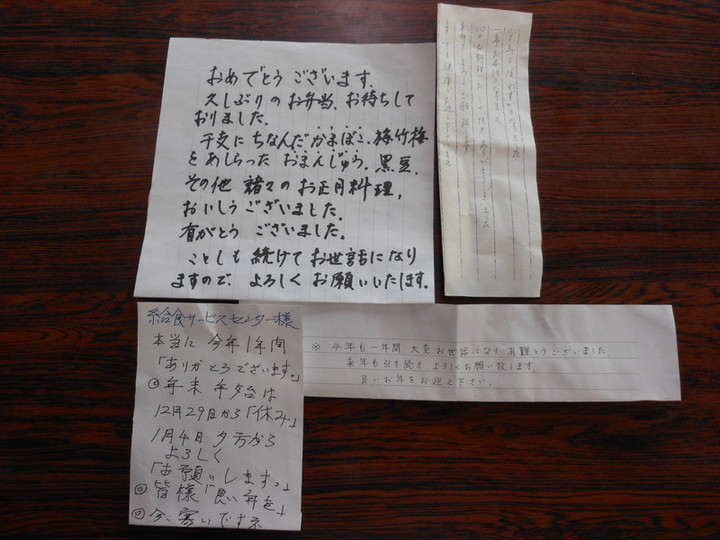 おめでとうございます。
久しぶりのお弁当、お待ちして
おりました。
干支にちなんだかまぼこ、梅竹梅
をあしらったおまんじゅう、黒豆、
その他 諸々のお正月料理、
おいしうございました。
有がとう ございました。
ことしも 続けてお世話になり
ますので、よろしくお願いいたします。
一年お世話になりました
※ 今年も一年間 大変お世話になり 有難とうございました。
来年も引き続き よろしくお願い致します。
良いお年をお迎え下さい。
給食サービスセンター様
本当に 今年1年間
「ありがとうございます。」
◎年末年始は
12月29日から「休み」
1月4日 夕方から
よろしく
「お願いします。」
◎皆様「良い年を」
◎今、寒いですネ